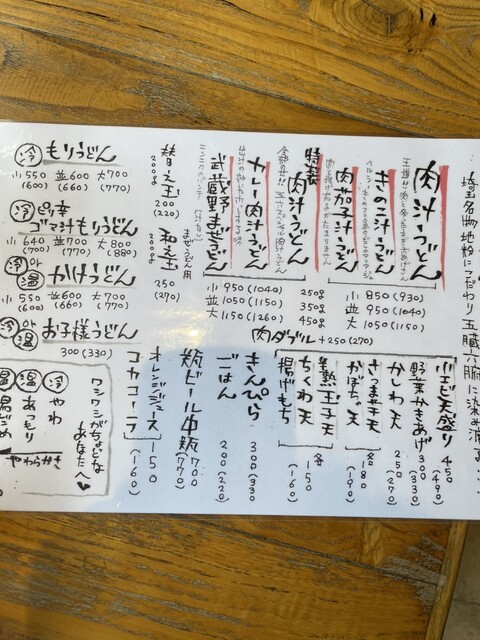 埼玉名物地粉にこだわり五臓六腑に染み渡る
肉汁うどん
きのこ汁うどん
肉茄子汁うどん
小 850(930)
並 950(1040)
大 1050(1150)
特製
肉汁うどん
カレー肉汁うどん
武蔵野まぜうどん
小 950(1040) 250g
並 1050(1150) 350g
大 1150(1260) 450g
肉ダブル +250(270)
替え玉
200g
200
(220)
和え玉
200g
まぜうどん用
250
(270)
冷 もりうどん
小550 並600 大700
(600) (660) (770)
冷 ピリ辛
ゴマ汁もりうどん
小640 並700 大800
(700) (770) (880)
冷 or 温 かけうどん
小550 並600 大700
(600) (660) (770)
冷 or 温 お子様うどん
300(330)
小エビ天盛り 450(490)
野菜かきあげ 300(330)
かしわ天 250(270)
さつま芋天
かぼちゃ天
各180(190)
半熟玉子天
ちくわ天
揚げもち
各150(160)
きんぴら 300(330)
ごはん 200(220)
瓶ビール中瓶 700(770)
オレンジジュース
コカコーラ
150
(160)
ワシワシがちょうな
あなたへ
冷 やわ
温 あつもり
温 湯だめ
やわらかき